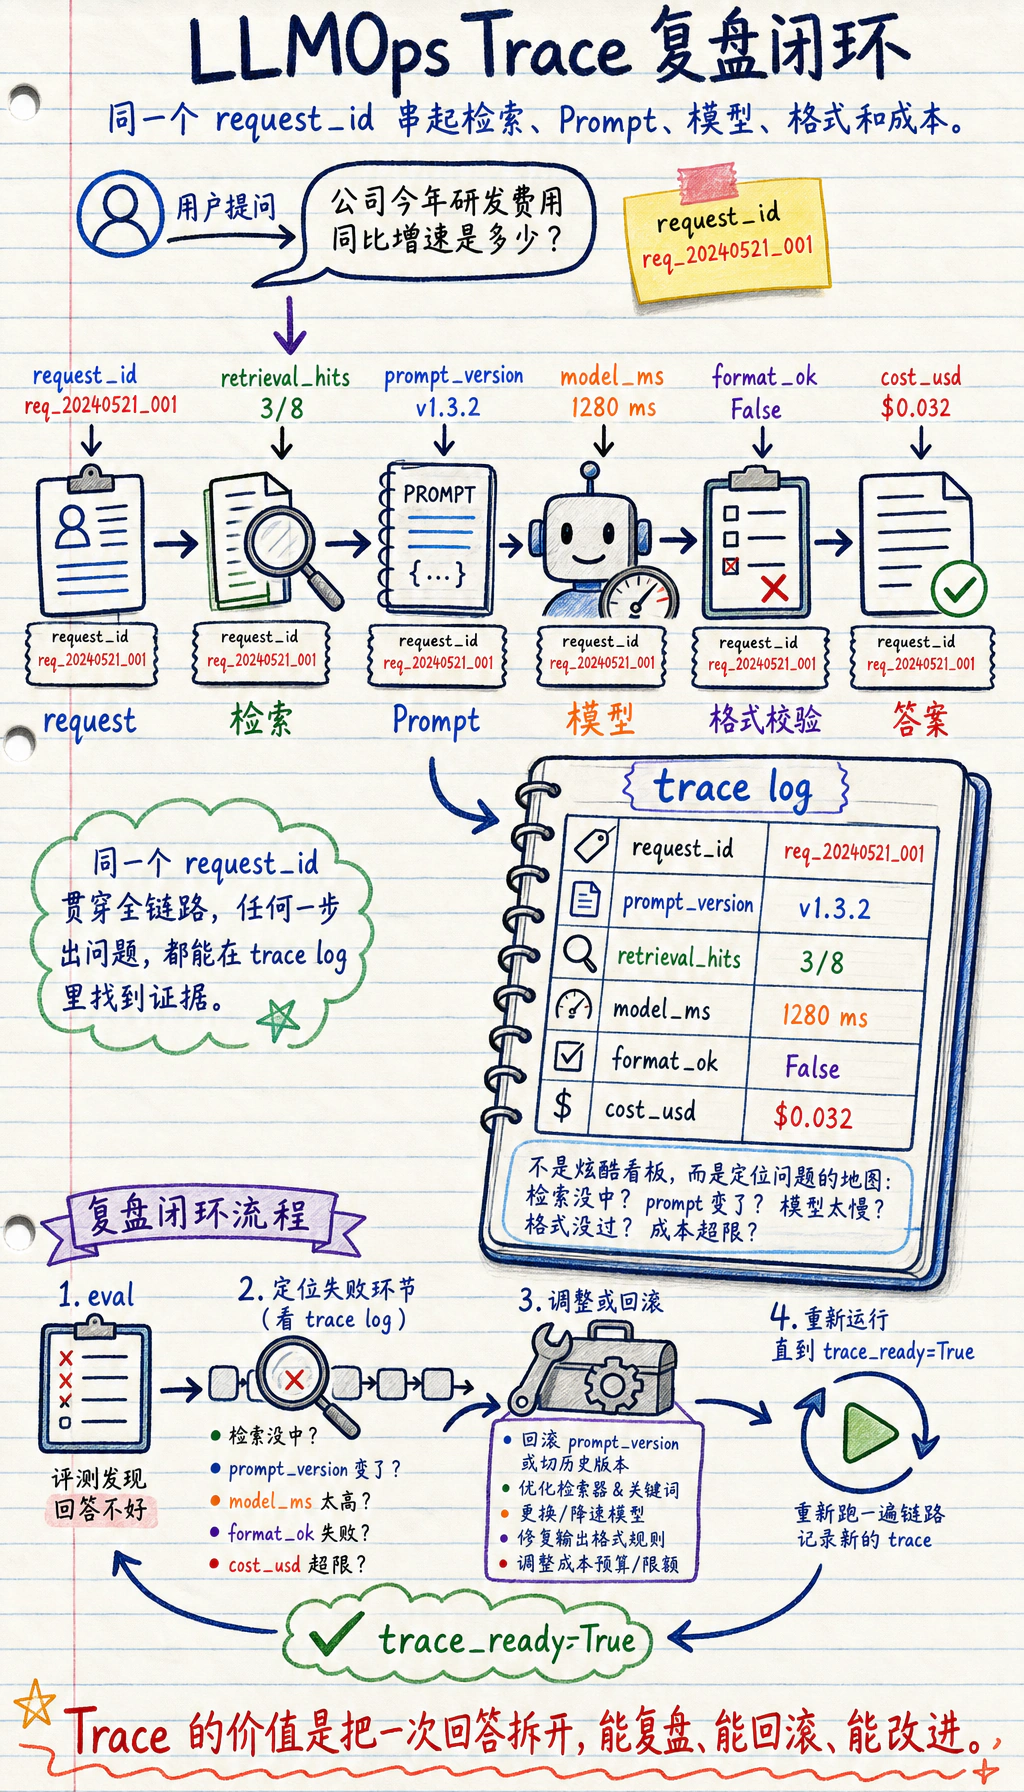 LLMOps Trace 复盘闭环
同一个 request_id 串起检索、Prompt、模型、格式和成本。
用户提问
公司今年研发费用
同比增速是多少?
request_id
req_20240521_001
request_id
req_20240521_001
retrieval_hits
3/8
prompt_version
v1.3.2
model_ms
1280 ms
format_ok
False
cost_usd
$0.032
PROMPT
{...}
request_id
req_20240521_001
request_id
req_20240521_001
request_id
req_20240521_001
request_id
req_20240521_001
request_id
req_20240521_001
request_id
req_20240521_001
request
检索
Prompt
模型
格式校验
答案
同一个 request_id
贯穿全链路，任何一步
出问题，都能在 trace log
里找到证据。
trace log
request_id req_20240521_001
prompt_version v1.3.2
retrieval_hits 3/8
model_ms 1280 ms
format_ok False
$ cost_usd $0.032
不是炫酷看板，而是定位问题的地图:
检索没中? prompt 变了? 模型太慢?
格式没过? 成本超限?
复盘闭环流程
1. eval
评测发现
回答不好
2. 定位失败环节
(看 trace log)
• 检索没中?
• prompt_version 变了?
• model_ms 太高?
• format_ok 失败?
• cost_usd 超限?
3. 调整或回滚
• 回滚 prompt_version
或切历史版本
• 优化检索器&关键词
• 更换/降速模型
• 修复输出格式规则
• 调整成本预算/限额
4. 重新运行
直到 trace_ready=True
重新跑一遍链路
记录新的 trace
trace_ready=True
Trace 的价值是把一次回答拆开，能复盘、能回滚、能改进。